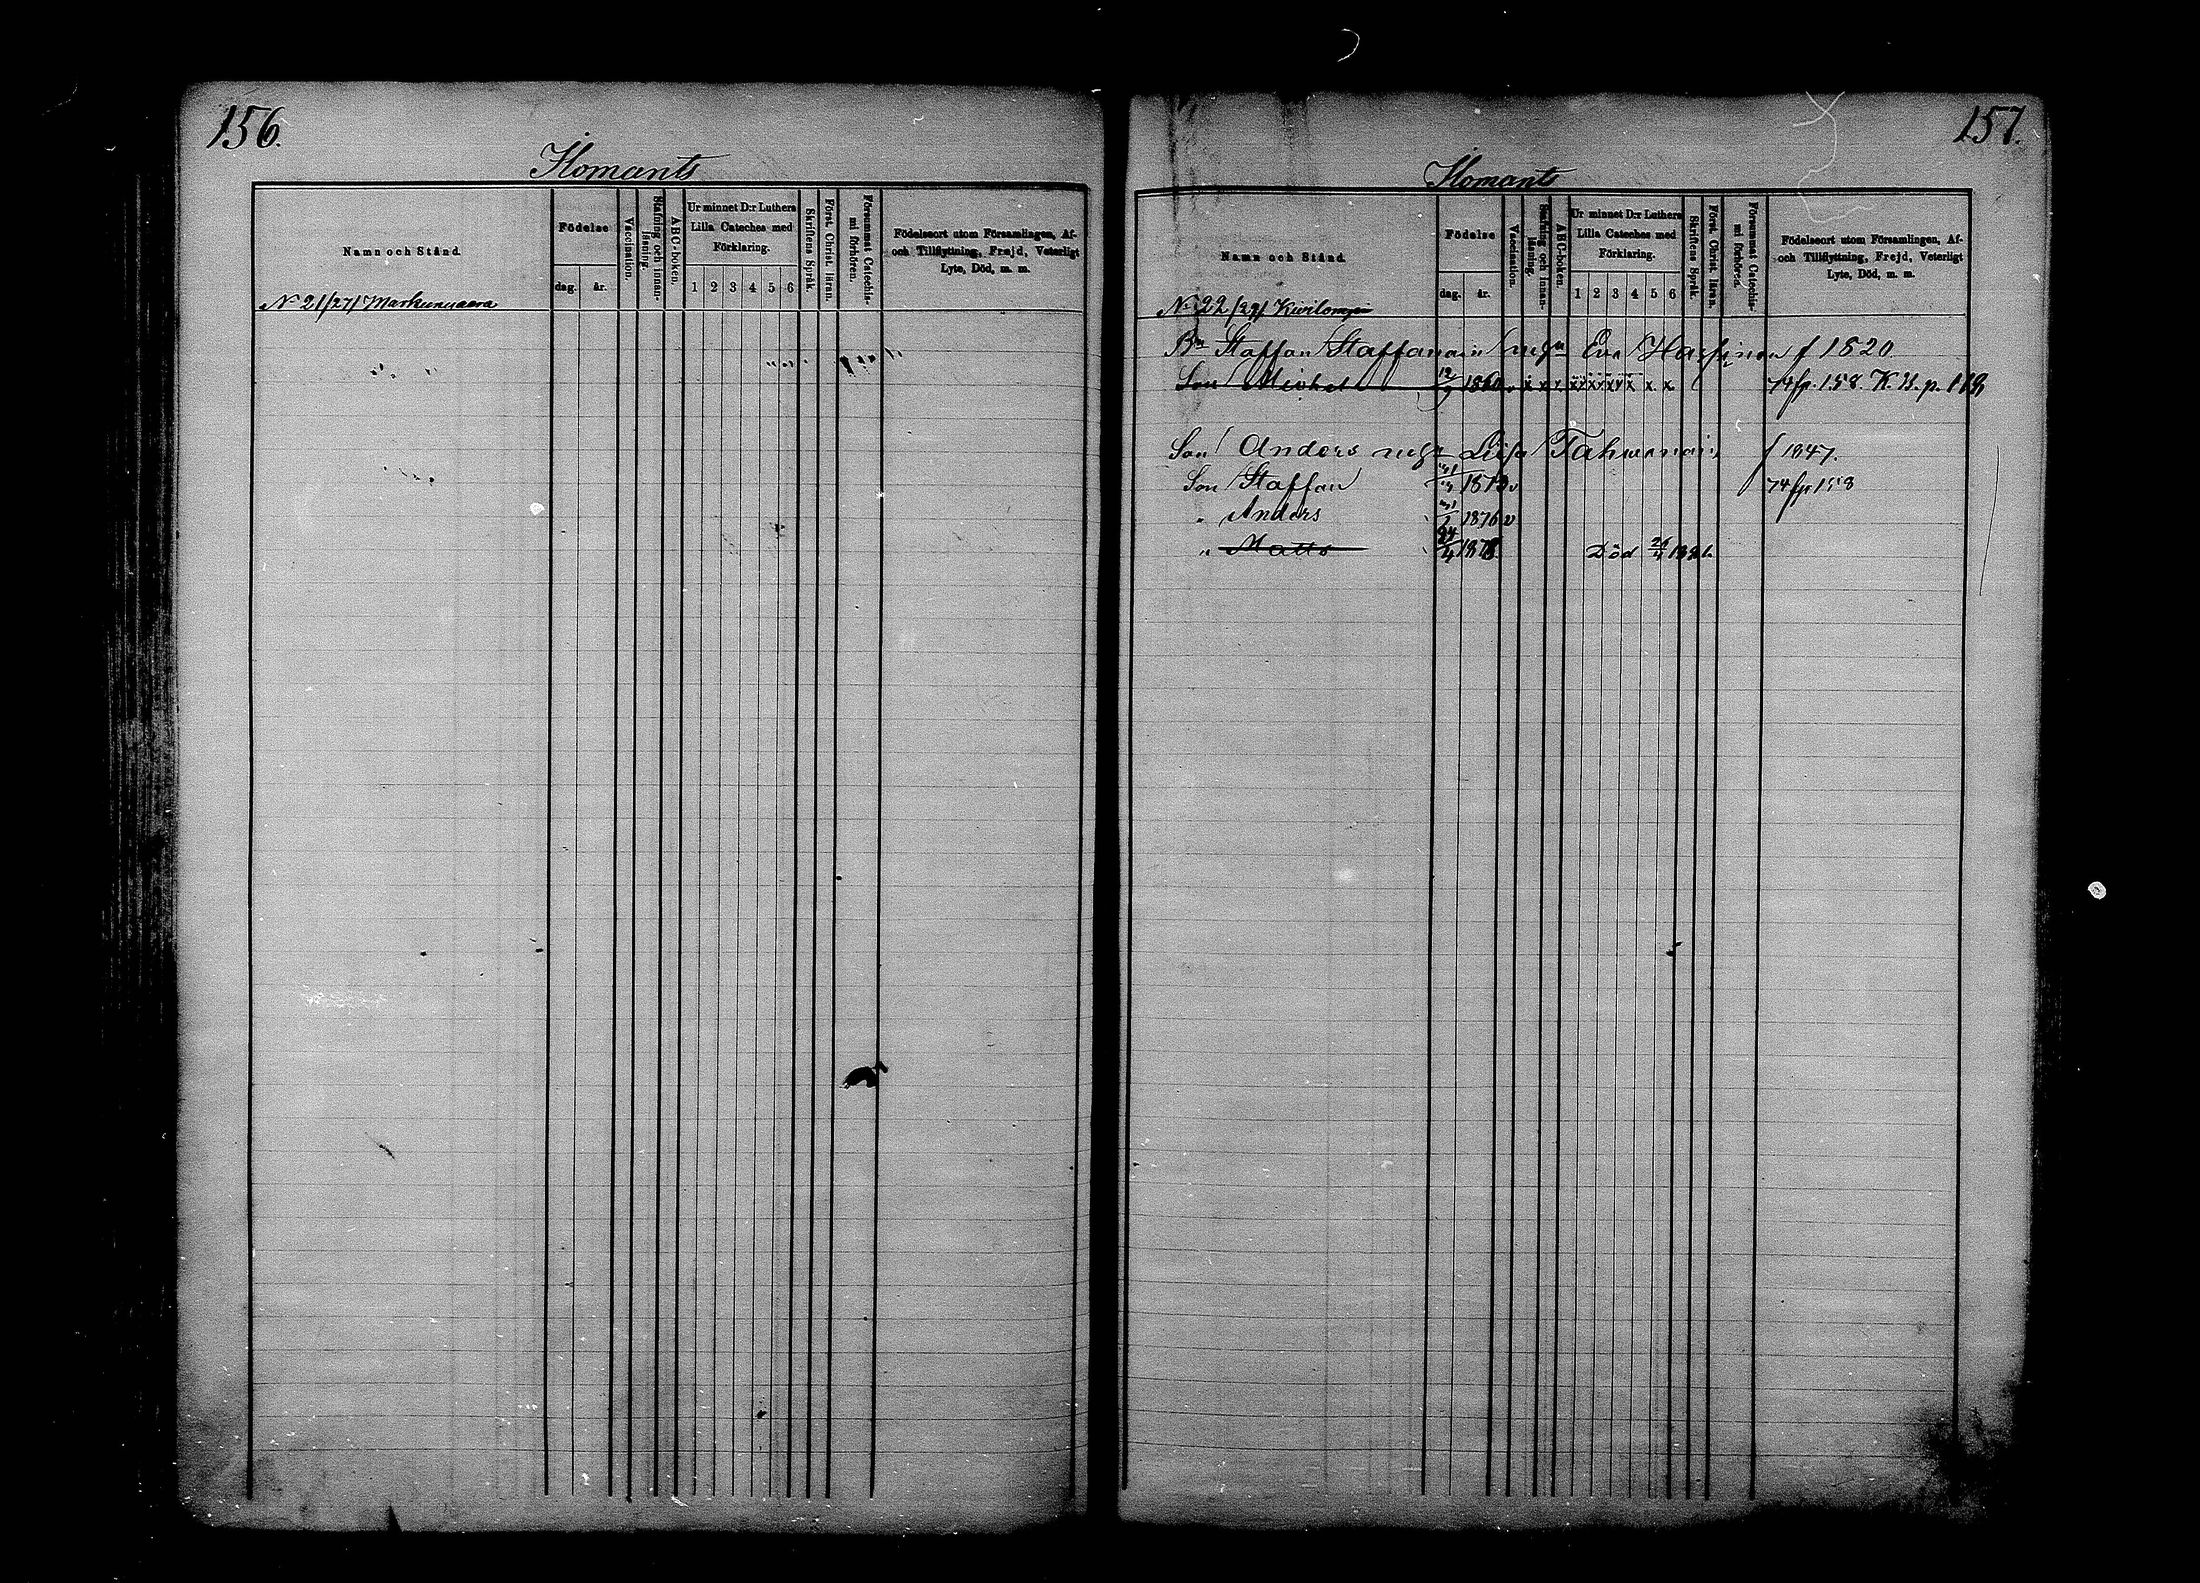 156.
Ilomants
Namn och Stånd.
Födelse
dag. år.
Vaccination.
Stafning och innan-
läsning.
ABC-boken.
Ur minnet D:r Luthers
Lilla Cateches med
Förklaring.
1 2 3 4 5 6
Skriftens Språk.
Först. Christ. läran.
Försummat Catechis-
mi förhören.
Födelseort utom Församlingen, Af-
och Tillflyttning, Frejd, Veterligt
Lyte, Död, m. m.
No 21/27/ Markunvaara
157.
Ilomants
Namn och Stånd.
Födelse
dag. år.
Vaccination.
Stafning och innan-
läsning.
ABC-boken.
Ur minnet D:r Luthers
Lilla Cateches med
Förklaring.
1 2 3 4 5 6
Skriftens Språk.
Först. Christ. läran.
Försummat Catechis-
mi förhören.
Födelseort utom Församlingen, Af-
och Tillflyttning, Frejd, Veterligt
Lyte, Död, m. m.
No 22/29/ Kivilompi
Bn Staffan Staffanain Eva f 1820
Son Michel 1860 v x x x x x x x x x x p. 158. K. B. p.
Son Anders Lisa Tahvanain f 1847.
Son Staffan v p 158
" Anders 1876 v
" Matts 24/4 1878 Död